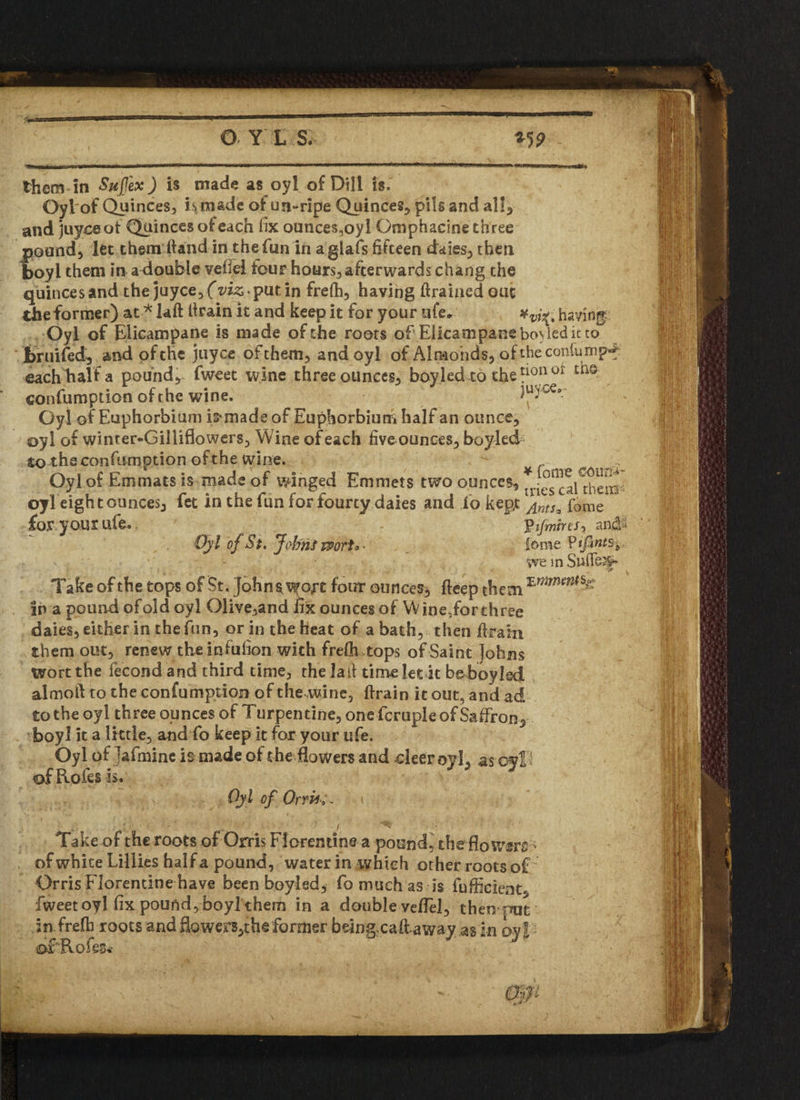 OYLS. 259
them in Suſſex) is made as oyl of Dill is.
Oyl of Quinces, is made of un-ripe Quinces, pils and all,
and juyce of Quinces of each ſix ounces, oyl Omphacine three
pound, let them ſtand in the ſun in a glaſs fifteen daies, then
boyl them in a double veſſel four hours, afterwards chang the
quinces and the juyce, (viz. put in freſh, having ſtrained out
the former) at * laſt ſtrain it and keep it for your uſe.
*viz. having boyled it to the conſump-tion of the juyce.
Oyl of Elicampane is made of the roots of Elicampane
bruiſed, and of the juyce of them, and oyl of Almonds, of
each half a pound, ſweet wine three ounces, boyled to the
conſumption of the wine.
Oyl of Euphorbium is made of Euphorbium half an ounce,
oyl of winter-Gilliflowers, Wine of each five ounces, boyled
to the conſumption of the wine.
Oyl of Emmats is made of winged Emmets two ounces,
oyl eight ounces, ſet in the ſun for fourty daies and ſo kept
for your uſe.
* ſome coun-
tries cal them
Ants, ſome
Piſmires, and
ſome Piſants,
we in Suſſex
Emments.
Oyl of St. Johns wort.
Take of the tops of St. Johns wort four ounces, ſteep them
in a pound of old oyl Olive, and ſix ounces of Wine, for three
daies, either in the ſun, or in the heat of a bath, then ſtrain
them out, renew the infuſion with freſh tops of Saint Johns
wort the ſecond and third time, the laſt time let it be boyled
almoſt to the conſumption of the wine, ſtrain it out, and ad
to the oyl three ounces of Turpentine, one ſcruple of Saffron,
boyl it a little, and ſo keep it for your uſe.
Oyl of Jaſmine is made of the flowers and cleer oyl, as oyl
of Roſes is.
Oyl of Orris.
Take of the roots of Orris Florentine a pound, the flowers
of white Lillies half a pound, water in which other roots of
Orris Florentine have been boyled, ſo much as is ſufficient,
ſweet oyl ſix pound, boyl them in a double veſſel, then put
in freſh roots and flowers, the former being caſt away as in oyl
of Roſes.
Oyl